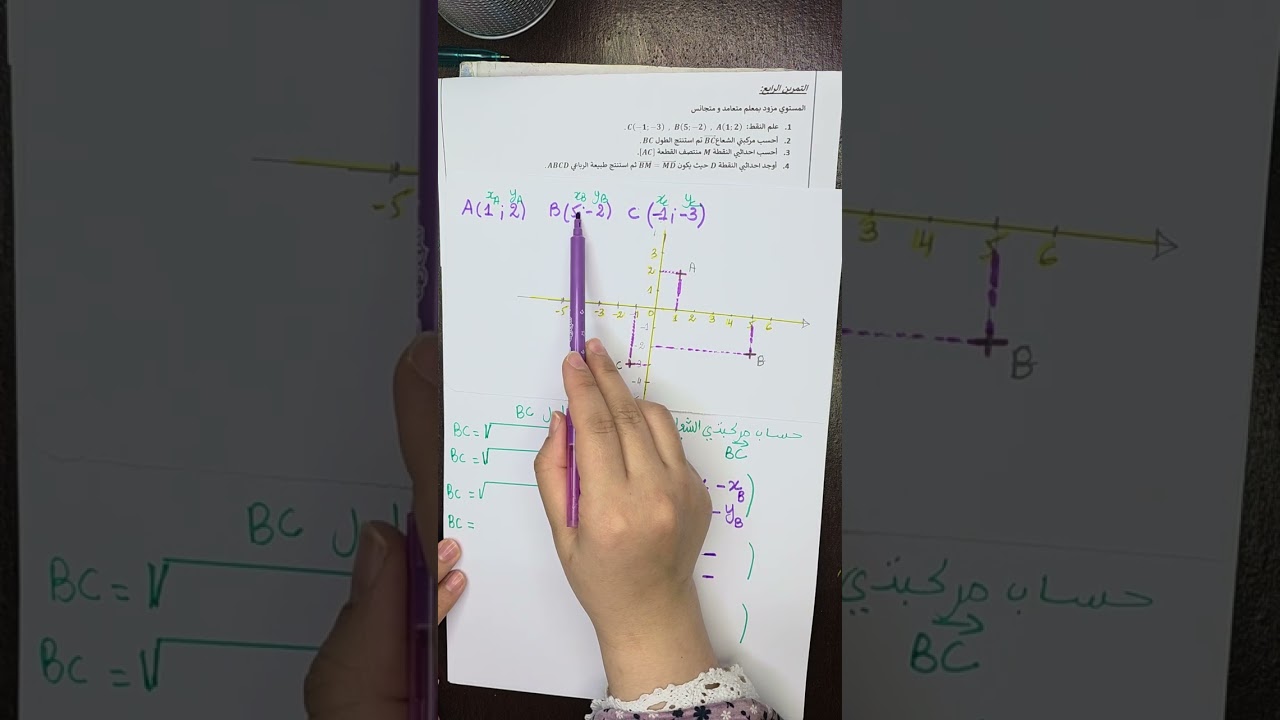 التمرين الرابع:
المستوي مزود بمعلم متعامد و متجانس
1. علم النقط: A(1; 2) , B(5; −2) , C(−1; −3).
2. أحسب مركبتي الشعاع BC ثم استنتج الطول BC.
3. أحسب احداثيي النقطة M منتصف القطعة [AC].
4. أوجد احداثيي النقطة D حيث يكون BM = MD ثم استنتج طبيعة الرباعي ABCD.
xA yA xB yB xc yc
A(1; 2) B(5; -2) C(-1; -3)
3
2 A
1
-5 -3 -2 -1 0 1 2 3 4 5 6
-1
-2 B
C -3
-4
حساب مركبتي الشعا BC
BC
BC = √
BC = √
BC = √
BC =
- xB
- yB